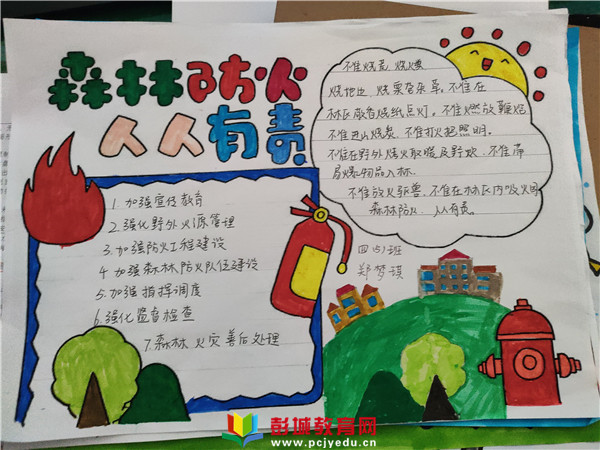 森林防火
人人有责
不准烧荒、烧
烧地边、烧果杂草。不准在
林区烧纸点灯。不准燃放鞭炮
不准进山烧炭、不准打火把照明。
不准在野外烤火取暖及野炊、不准带
易爆物品入林
不准放火驱兽、不准在林区内吸火烟
森林防火、人人有责。
1.加强宣传教育
2.强化野外火源管理
3.加强防火工程建设
4.加强森林防火队伍建设
5.加强指挥调度
6.强化监督检查
7.森林火灾善后处理
四(5)班
郑梦琪
彭城教育网
www.pcjyedu.cn